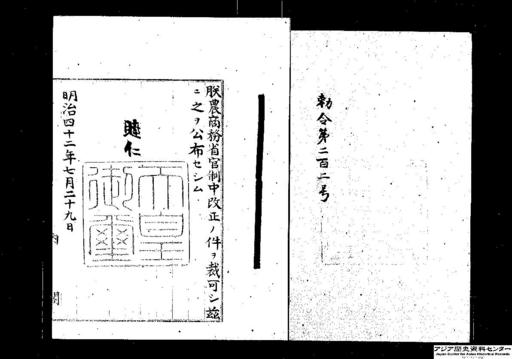 勅令第二百二号
朕農商務省官制中改正ノ件ヲ裁可シ茲
ニ之ヲ公布セシム
睦仁
天皇御璽
明治四十二年七月二十九日
内閣
アジア歴史資料センター
Japan Center for Asian Historical Records